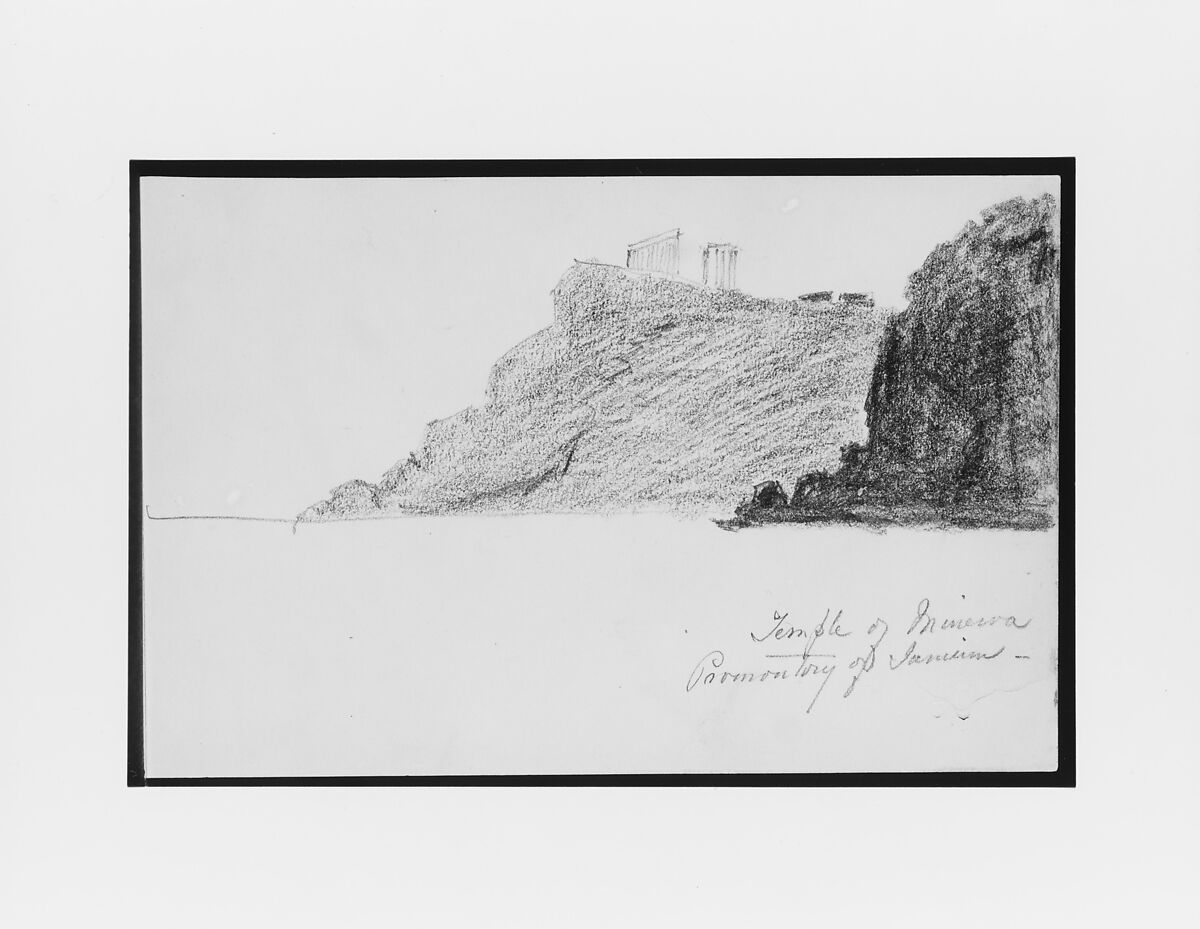 Temple of Minerva
Promontory of Sunium –